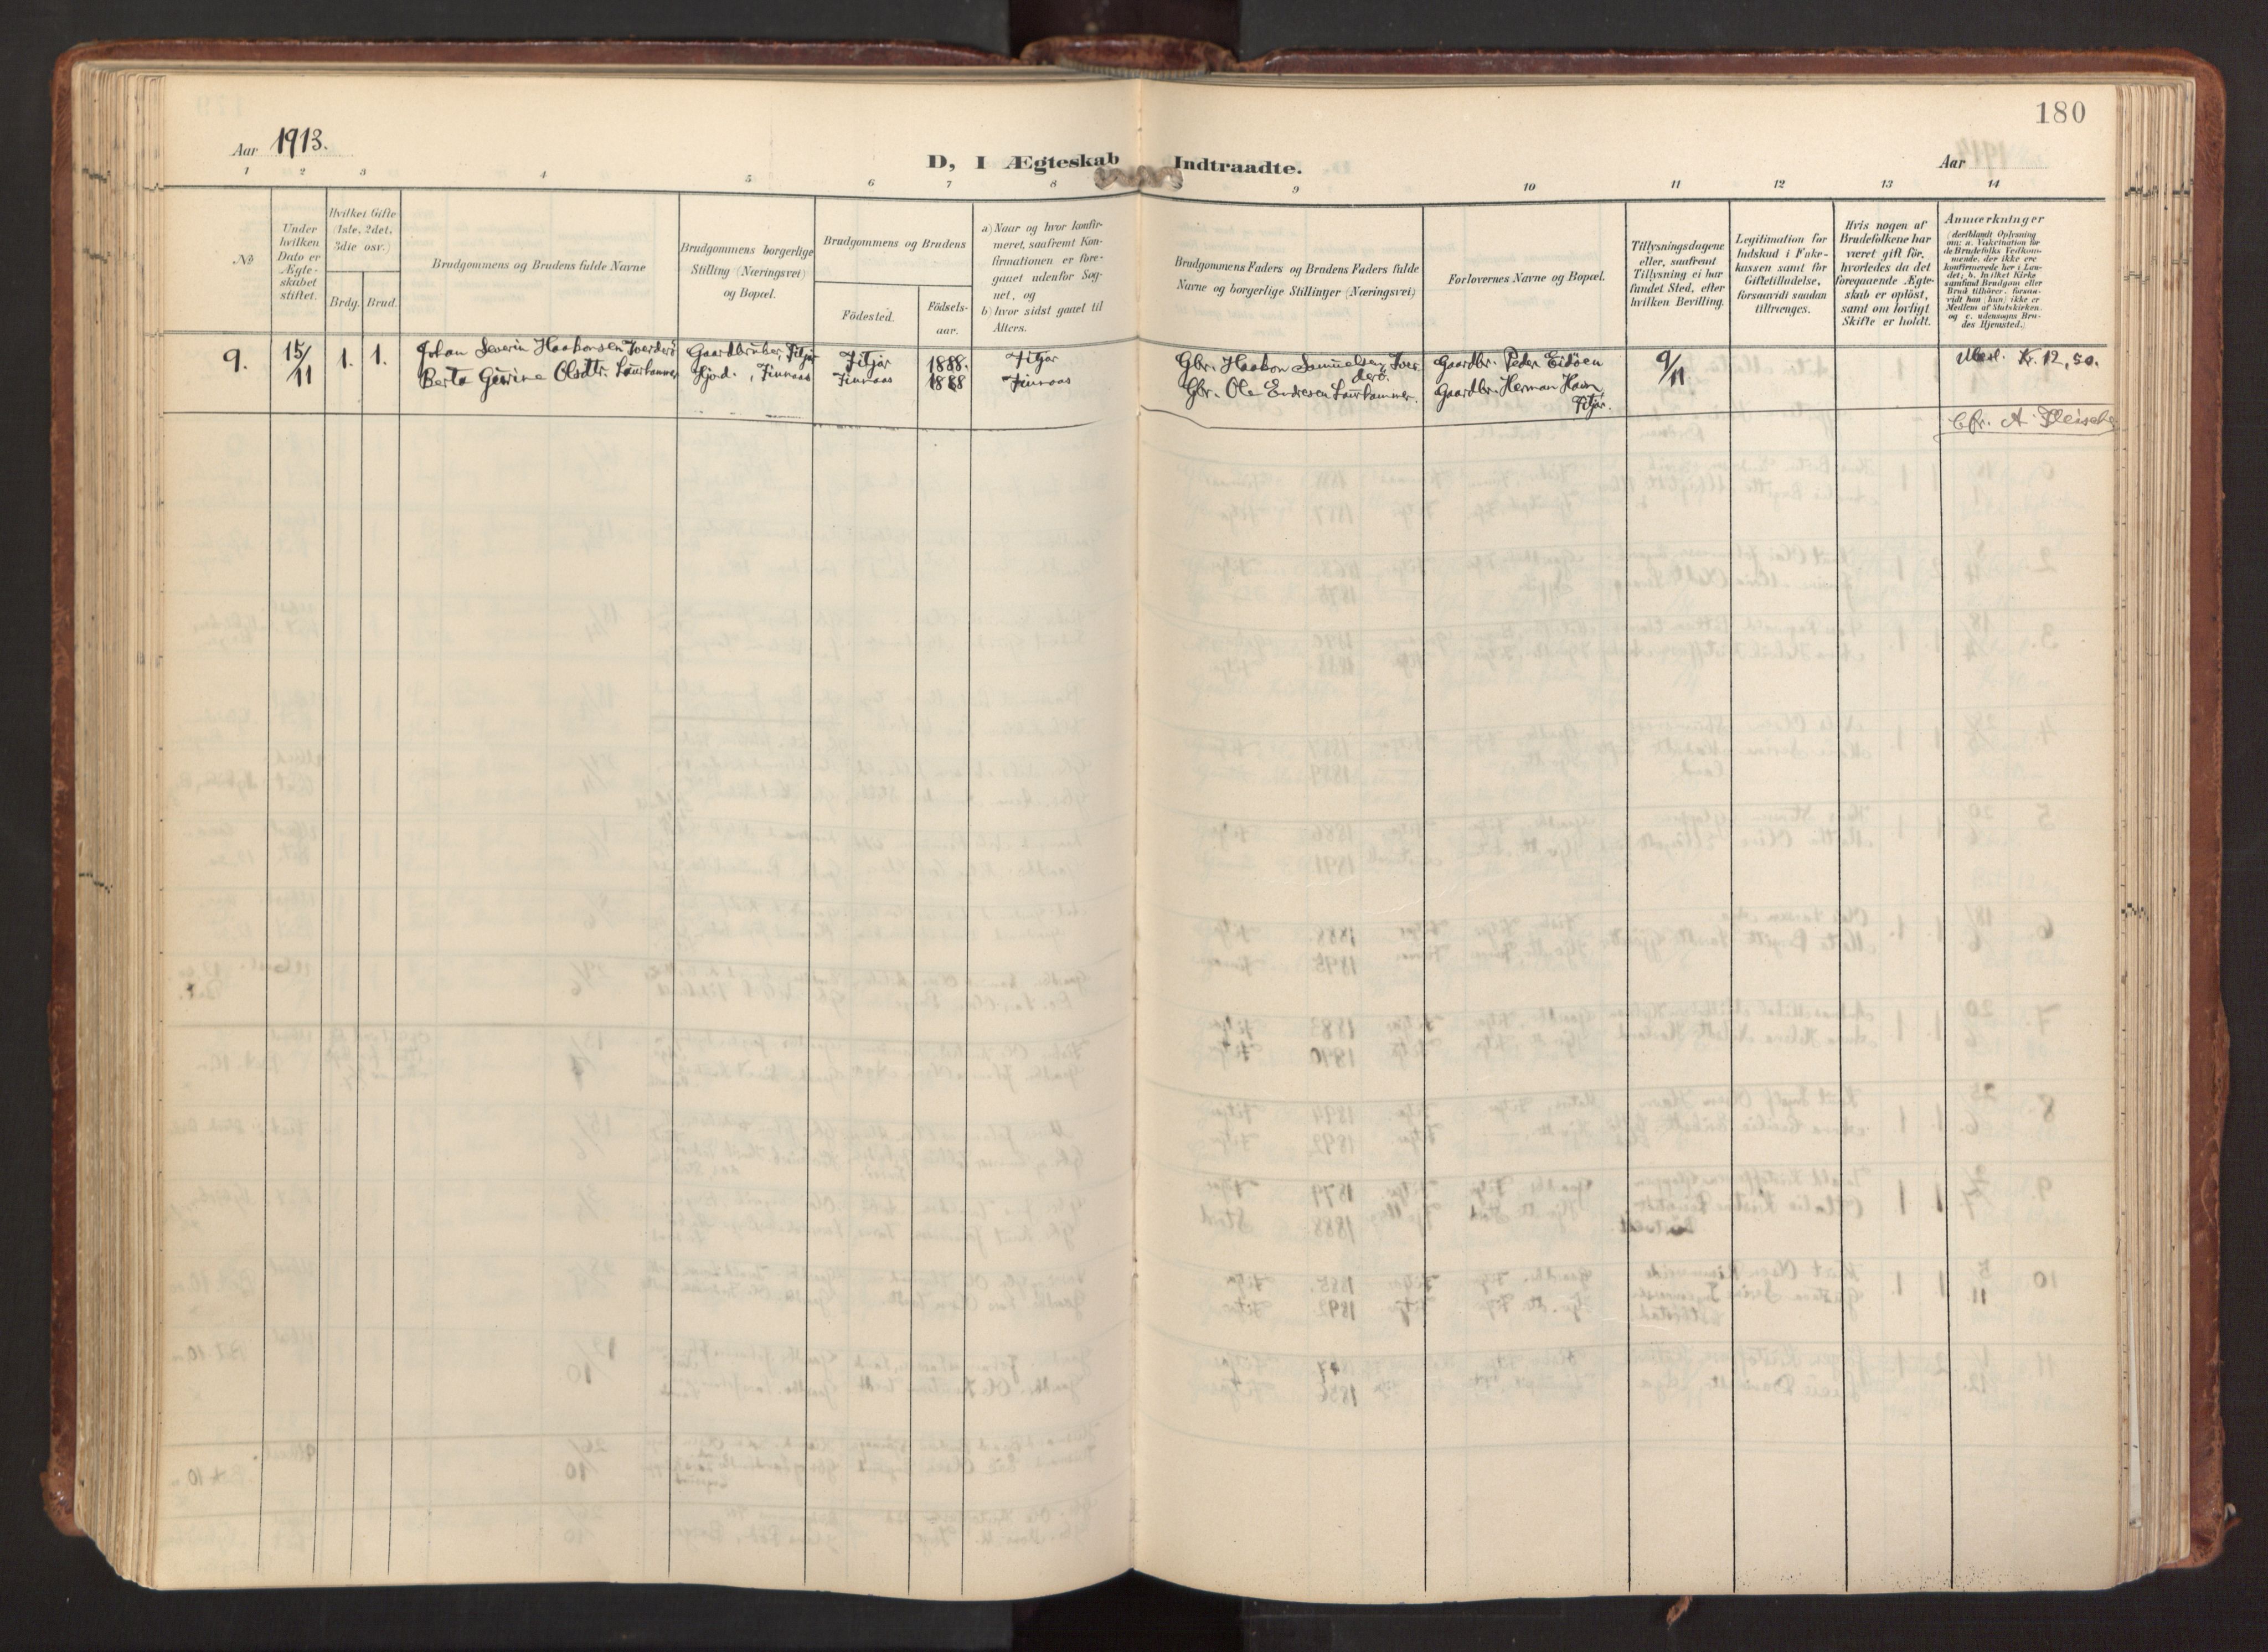 180
Aar 1913.
D, I Ægteskab Indtraadte.
Aar
1 2 3 4 5 6 7 8 9 10 11 12 13 14
No
Under
hvilken
Dato er
Ægte-
skabet
stiftet.
Hvilket Gifte
(1ste, 2det,
3die osv.)
Brdg. Brud.
Brudgommens og Brudens fulde Navne
Brudgommens borgerlige
Stilling (Næringsvei)
og Bopæl.
Brudgommens og Brudens
Födested.
Födsels-
aar.
a) Naar og hvor konfir-
meret, saafremt Kon-
firmationen er fore-
gaaet udenfor Sog-
net, og
b) hvor sidst gaaet til
Alters.
Brudgommens Faders og Brudens Faders fulde
Navne og borgerlige Stillinger (Næringsvei)
Forlovernes Navne og Bopæl.
Tillysningsdagene
eller, saafremt
Tillysning ei har
fundet Sted, efter
hvilken Bevilling.
Legitimation for
Indskud i Enke-
kassen samt for
Giftetilladelse,
forsaavidt saadan
tiltrænges.
Hvis nogen af
Brudefolkene har
været gift för,
hvorledes da det
foregaaende Ægte-
skab er oplöst,
samt om lovligt
Skifte er holdt.
Anmærkninger
(deriblandt Oplysning
om: a. Vakcination for
de Brudefolks Vedkom-
mende, der ikke ere
konfirmerede her i Lan-
det; b. hvilket Kirke
samfund Brudgom eller
Brud tilhörer, forsaa-
vidt han (hun) ikke er
Medlem af Statskirken,
og c. udensogns Bru-
des Hjemsted.)
9. 15/11 1. 1.
Johan Severin Haakonsen Gaardbruker, Fitjar Fitjar 1888. Fitjar
Berta Gurine Olsdtr. Hjvd., Finnaas Finnaas 1888 Finnaas
Gbr. Haakon Samuelsen Gaardbr. Peder Eidöen 9/11 Kr. 12,50.
Gbr. Ole Endresen Gaardbr. Herman Havn,
Fitjar.
Cfr. A.